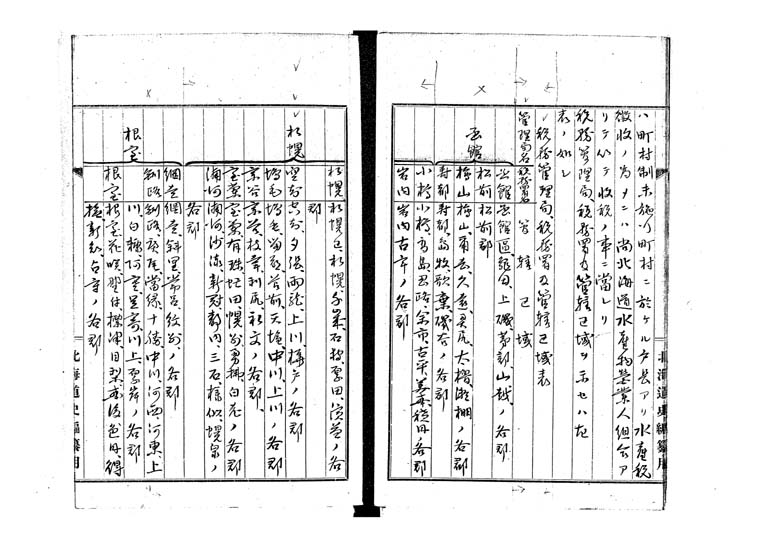 ハ町村制未施行町村ニ於ケル戸長アリ水産税
徴收ノ為メニハ尚北海道水産物営業人組合ア
リテ以テ收税ノ事ニ當レリ
税務管理局税務署及管轄区域ヲ示セハ左
表ノ如シ
税務管理局、税務署及管轄区域表
管理局名 税務署名 管轄区域
函館 函館 函館區、龜田、上磯、茅部、山越、ノ各郡
松前 松前郡
檜山 檜山、爾志、久遠、奥尻、太櫓、瀬棚、ノ各郡
寿都 寿都、島牧、歌棄、磯谷、ノ各郡
小樽 小樽、高島、忍路、余市、古平、美國、積丹、各郡
岩内 岩内、古宇、ノ各郡
北海道史編纂用
札幌 札幌 札幌区、札幌、千歳、石狩、厚田、浜益、ノ各
郡
空知 空知、夕張、雨竜、上川、樺戸、ノ各郡
増毛 増毛、留萌、苫前、天塩、中川、上川、ノ各郡
宗谷 宗谷、枝幸、利尻、礼文、ノ各郡
室蘭 室蘭、有珠、虻田、幌別、勇拂、白老、ノ各郡
浦河 浦河、沙流、新冠、静内、三石、様似、幌泉、ノ
各郡
根室 網走 網走、斜里、常呂、紋別、ノ各郡
釧路 釧路、廣尾、當縁、十勝、中川、河西、河東、上
川、白糠、阿寒、足寄、川上、厚岸、ノ各郡
根室 根室、花咲、野付、標津、目梨、國後、色丹、擇
捉、新知、占守、ノ各郡
北海道史編纂用